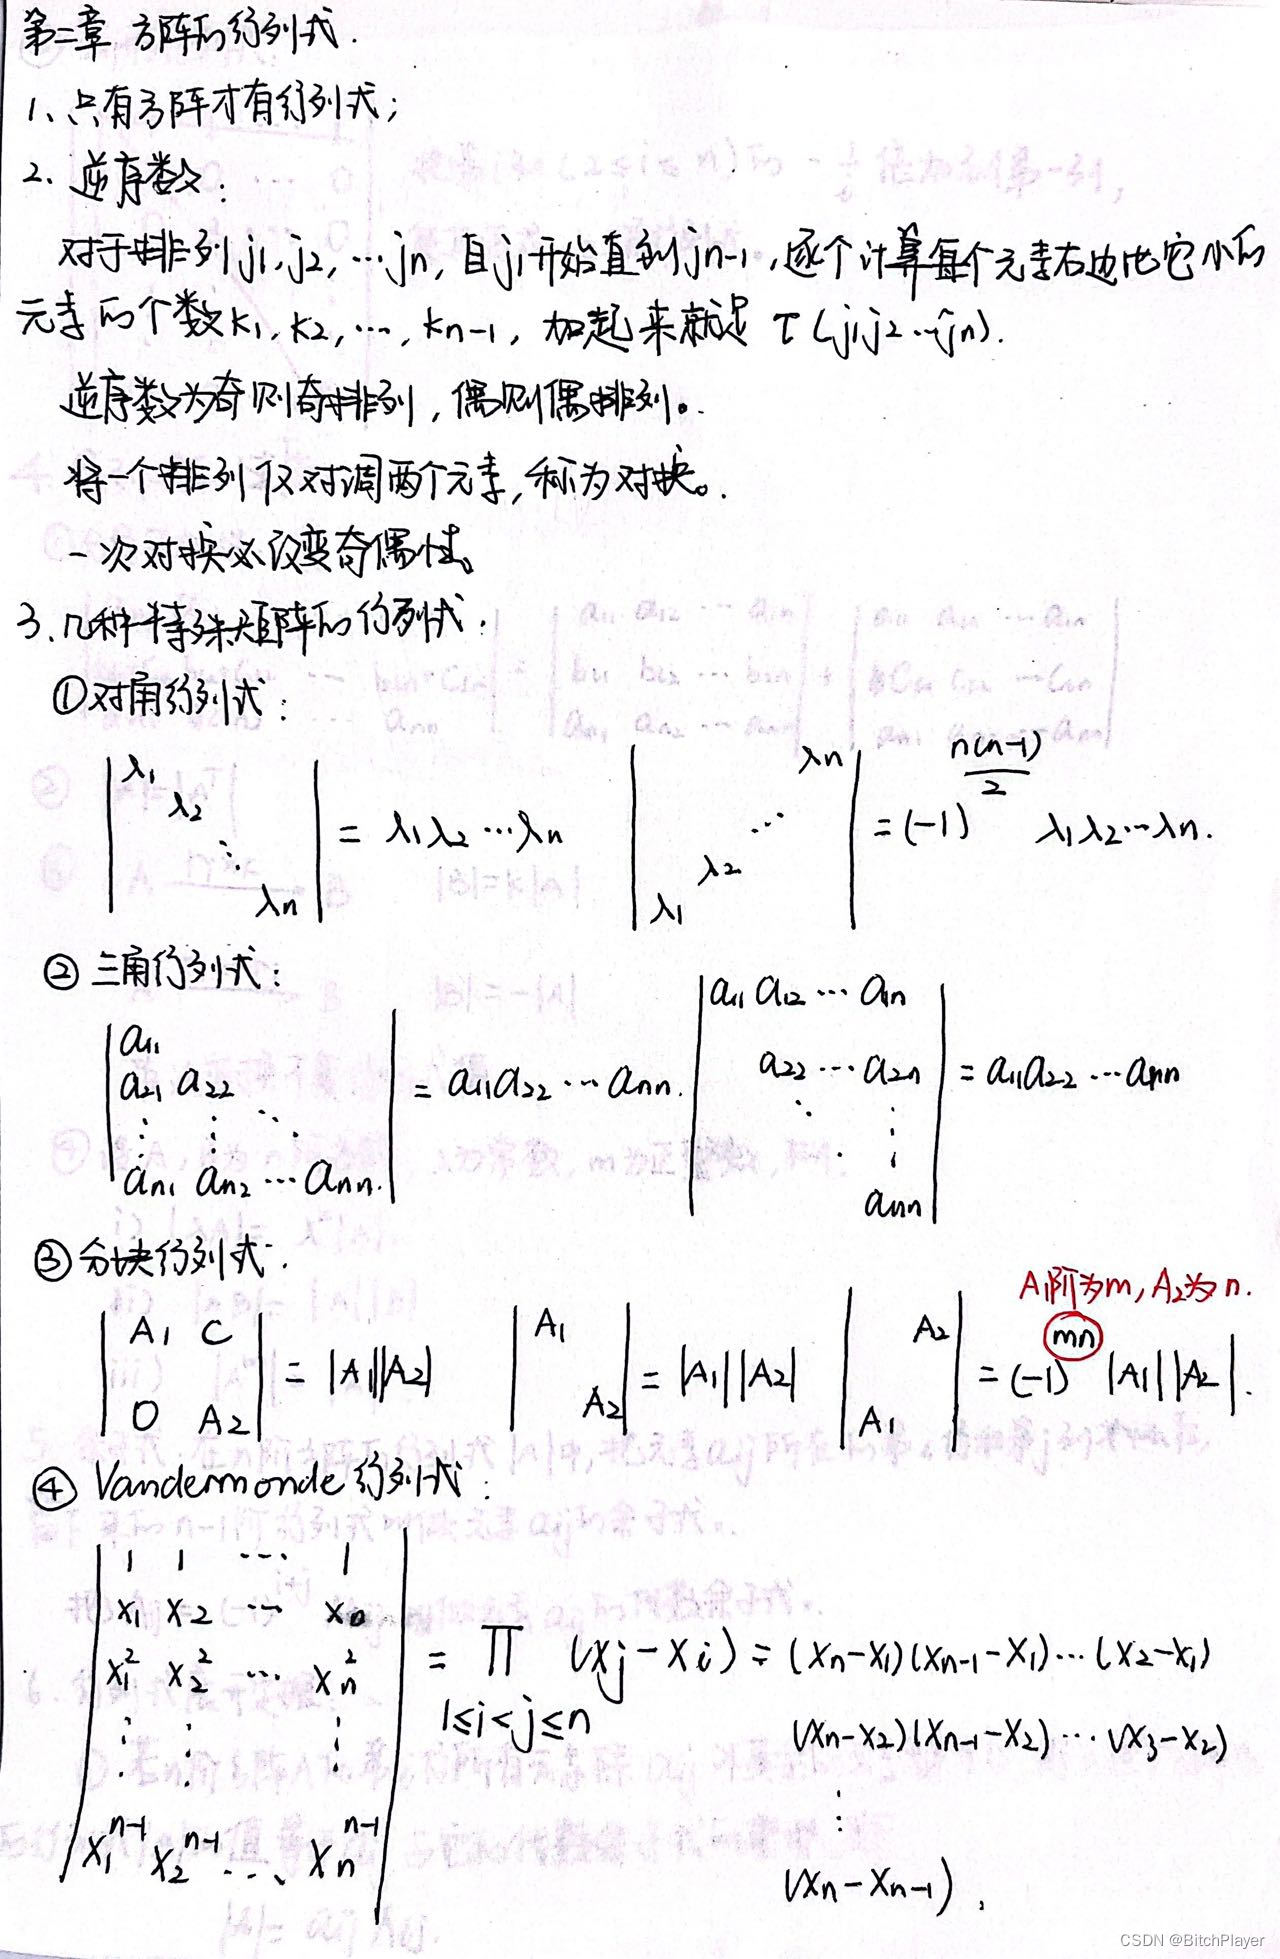 第二章 方阵的行列式.
1、只有方阵才有行列式;
2、逆序数:
对于排列j1,j2,…jn,自j1开始直到jn-1,逐个计算每个元素右边比它小的
元素的个数k1,k2,…,kn-1,加起来就是 τ(j1j2…jn).
逆序数为奇则奇排列,偶则偶排列。
将一个排列仅对调两个元素,称为对换。
一次对换必改变奇偶性。
3、几种特殊矩阵的行列式:
①对角行列式:
| λ1 λ2 ⋱ λn | = λ1λ2…λn | λn ⋰ λ2 λ1 | = (-1)^{n(n-1)/2} λ1λ2…λn.
②三角行列式:
| a11
a21 a22
⋮ ⋮ ⋱
an1 an2 … ann. | = a11a22…ann.
| a11 a12 … a1n
a22 … a2n
⋱ ⋮
ann | = a11a22…ann
③分块行列式.
A1阶为m,A2为n.
| A1 C
O A2 | = |A1||A2|
| A1
A2 | = |A1||A2|
| A2
A1 | = (-1)^{mn} |A1||A2|.
④ Vandermonde行列式:
| 1 1 … 1
x1 x2 … xn
x1^2 x2^2 … xn^2
⋮ ⋮ ⋮
x1^{n-1} x2^{n-1} … xn^{n-1} | = ∏ (xj-xi) = (xn-x1)(xn-1-x1)…(x2-x1)
1≤i<j≤n
(xn-x2)(xn-1-x2)…(x3-x2)
⋮
(xn-xn-1).
CSDN @BitchPlayer